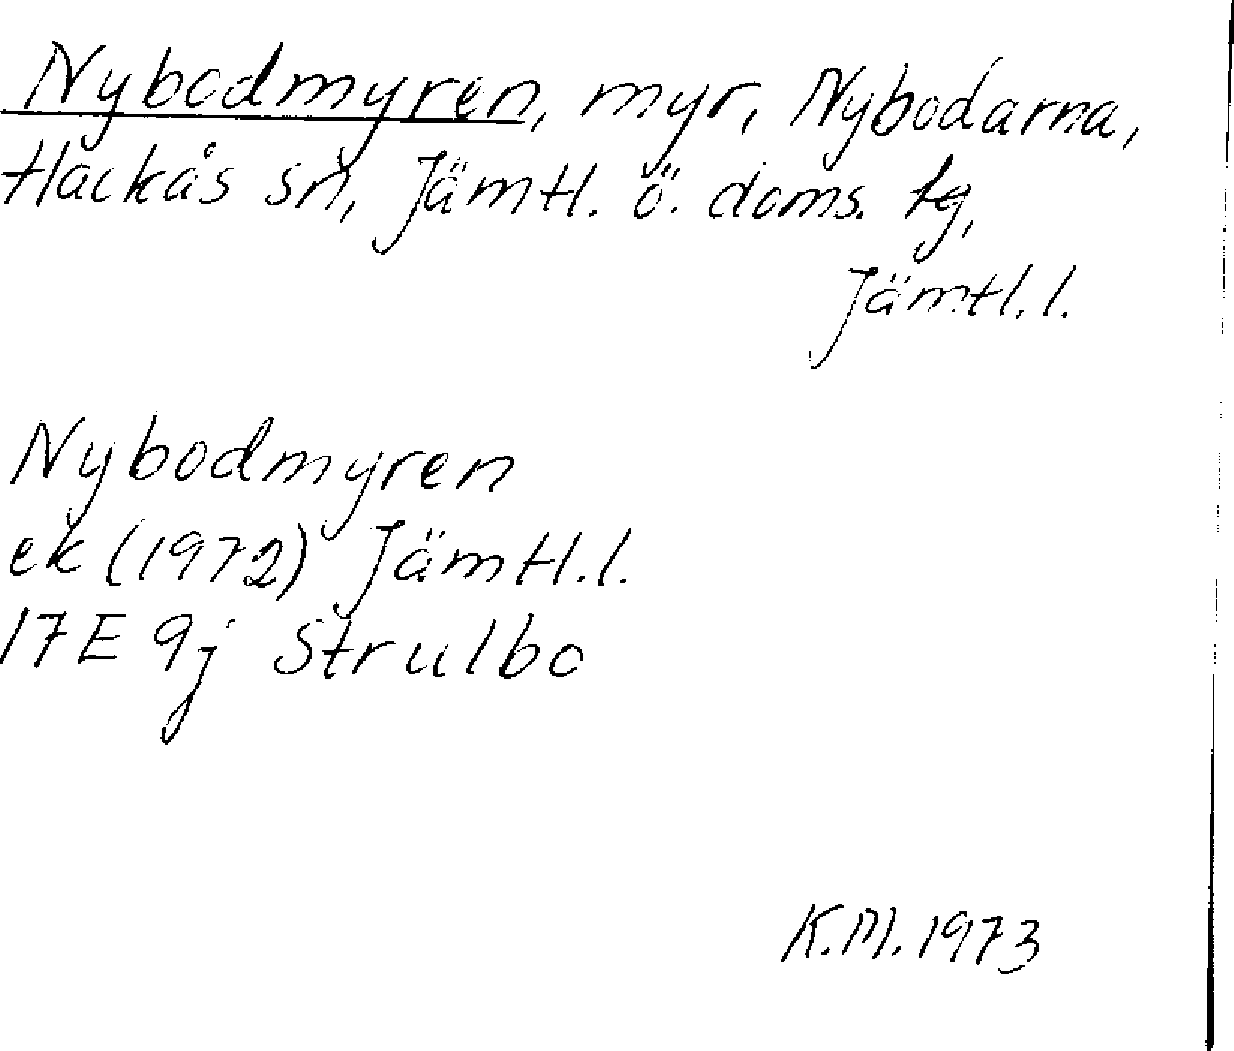 Nybodmyren, myr, Nybodarna,
Hackås sn, Jämtl. ö. doms. tg,
Jämtl. l.
Nybodmyren
ek (1972) Jämtl. l.
17E 9j Strulbo
K.M. 1973